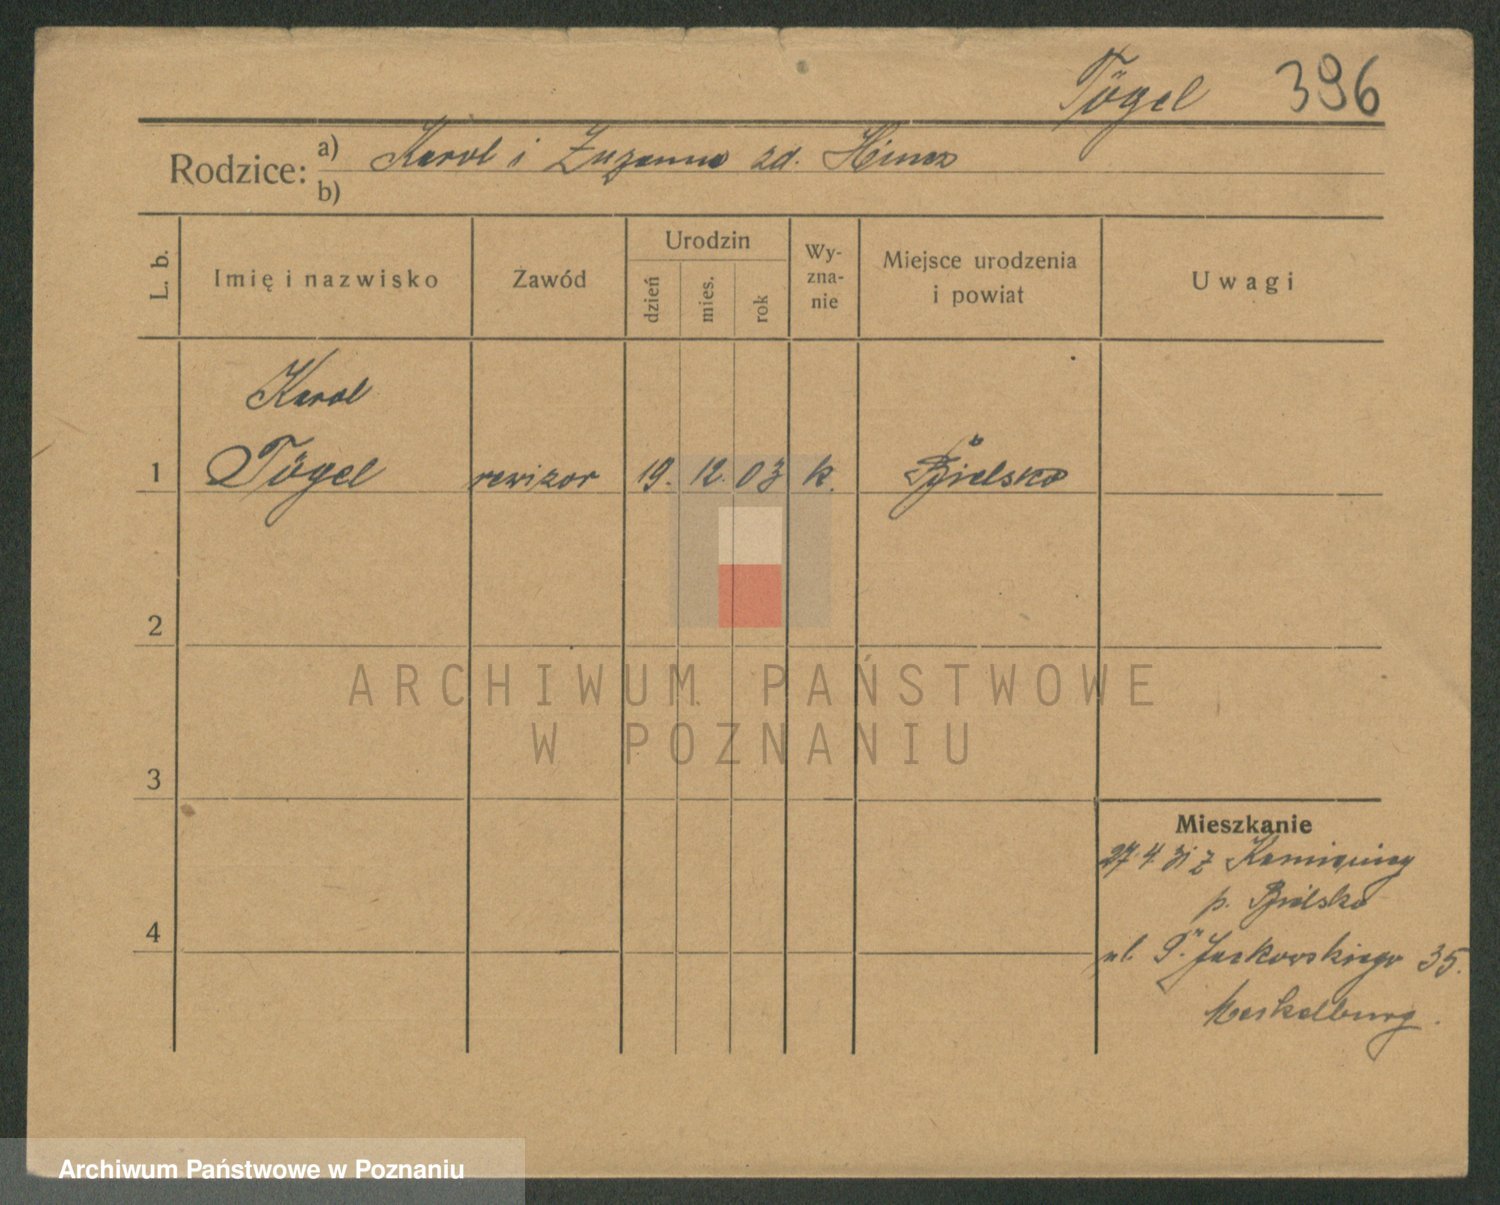 Tögel 396
Rodzice: a) Karol i Zuzanna zd.
b)
L. b. Imię i nazwisko Zawód Urodzin dzień mies. rok Wy-zna-nie Miejsce urodzenia i powiat Uwagi
Karol
1 Tögel rewizor 19. 12. 03 k. Bielsko
2
3
4
Mieszkanie
27.4.31 z Kamienicy
p. Bielsko
ul. Jackowskiego 35.
ARCHIWUM PAŃSTWOWE
W POZNANIU
Archiwum Państwowe w Poznaniu